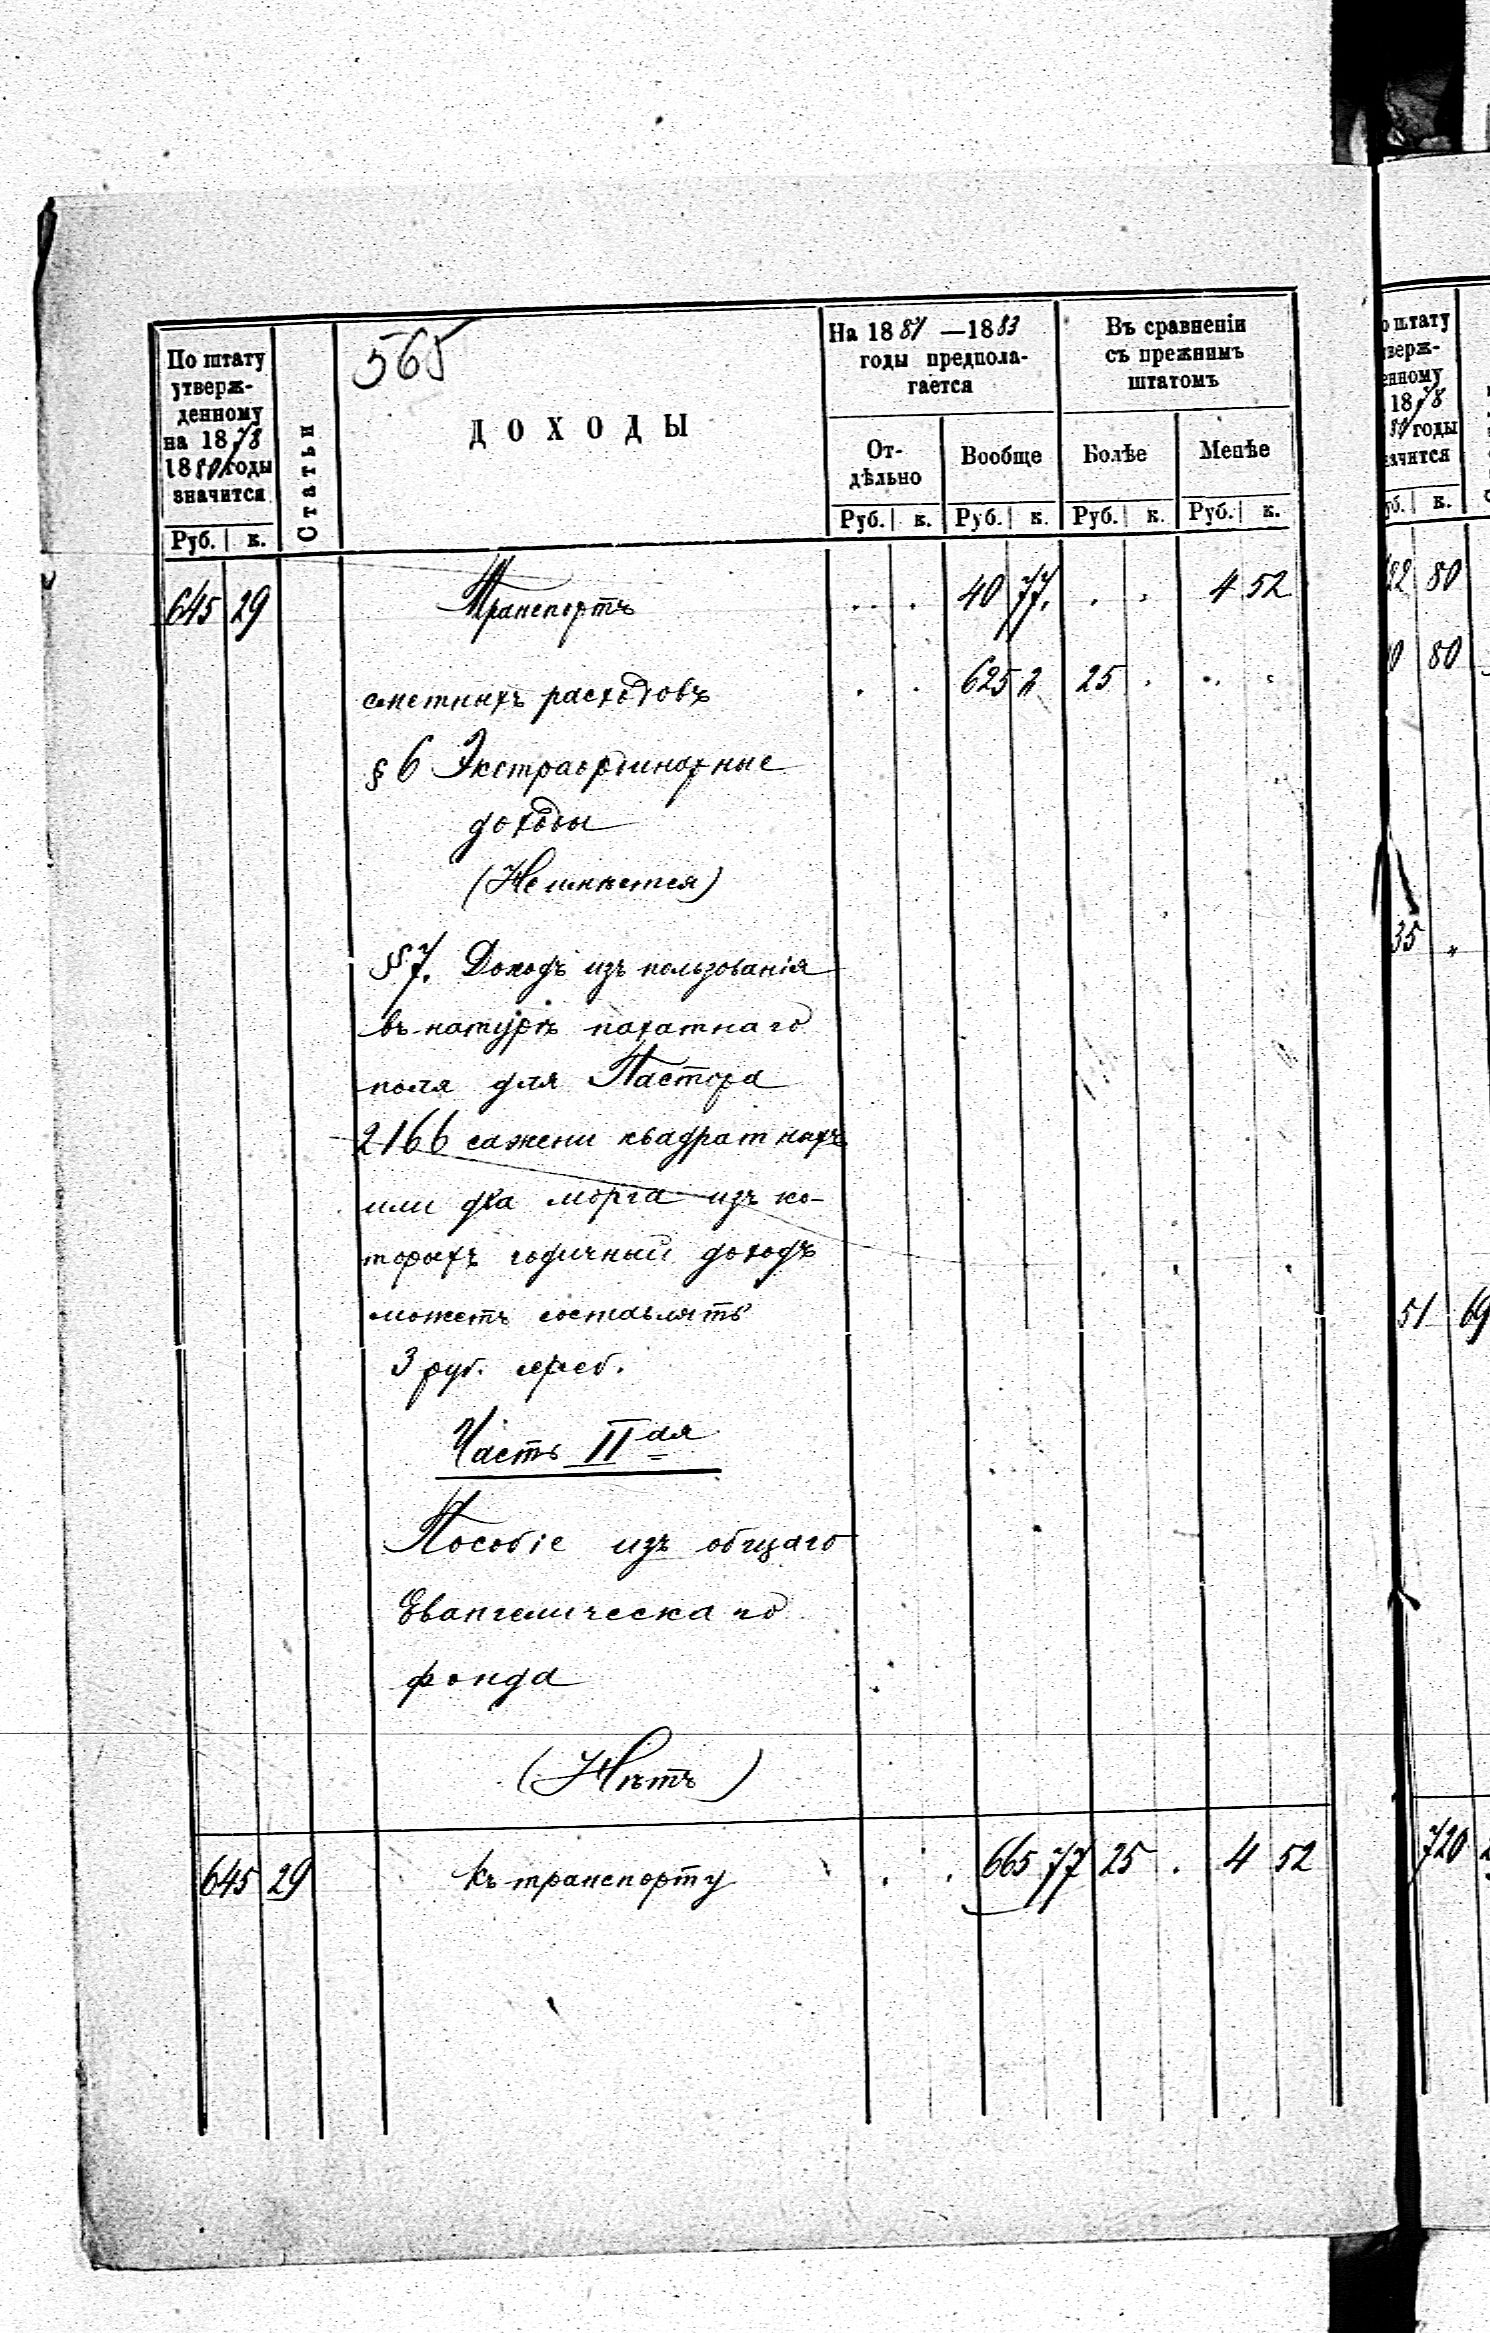 565
По штату утверж- денному на 1878 1880 годы значится
Статьи
ДОХОДЫ
На 1881 —1883 годы предпола- гается
Въ сравненіи съ прежнимъ штатомъ
От- дѣльно
Вообще
Болѣе
Менѣе
Руб. к. Руб. к. Руб. к. Руб. к. Руб. к.
645 29 Транспортъ . . . 40 77. . . 4 52
сметныхъ расходовъ . . 625 25 . . .
§ 6 Экстраординарные
доходы
(Не имѣется)
§ 7. Доходъ изъ пользованія
въ натурѣ пахатнаго
поля для Пастора
2166 сажени квадратныхъ
или два морга изъ ко-
торыхъ годичный доходъ
можетъ составлять
3 руб. сереб.
Часть II ая
Пособіе изъ общаго
Евангелическаго
фонда
(Нѣтъ)
645 29 Къ транспорту . . 665 77 25 . 4 52
штату
верж-
енному
1878
80 годы
ачится
уб. к.
22 80
80
35 "
51 69
720